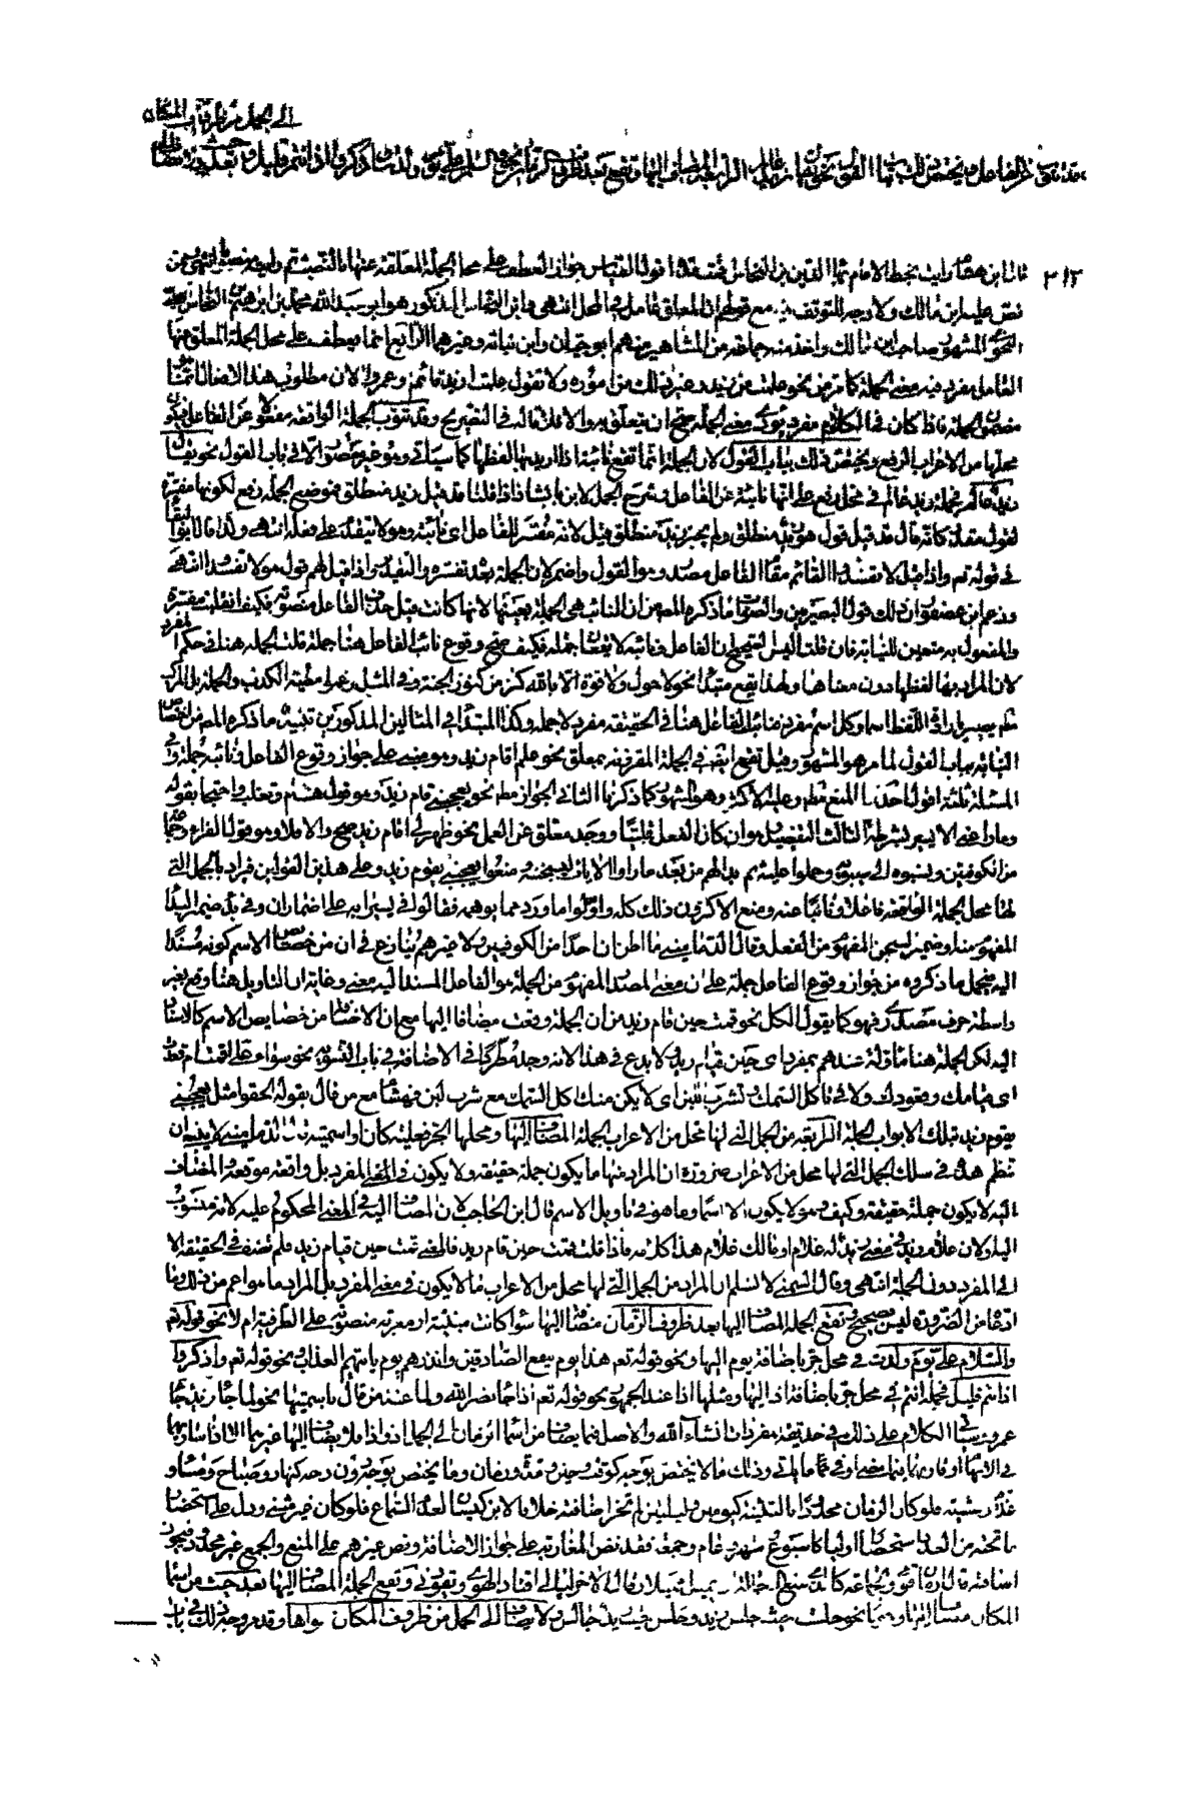 الى الجمل من ظروف المكان
وقد تنوب عن الفاعل ويختص ذلك بباب القول نحو يقال زيد عالم الرابعة المضاف اليها وتقع بعد ظروف الزمان نحو والسلام على يوم ولدت واذكروا اذ انتم قليل وبعد حيث
٣١٢
قال ابن هشام رايت بخط الامام بهاء الدين بن النحاس اقول القياس جواز العطف على محل الجملة المعلقة عنها بالنصب ثم رايته منصوصا انتهى ممن
نص عليه ابن مالك ولا وجه للتوقف فيه مع قولهم ان المعلق عامل في المحل انتهى وابن النحاس المذكور هو ابو عبد الله محمد بن ابراهيم النحاس
النحوي المشهور صاحب ابن مالك واخذ منه جماعة من المشاهير منهم ابو حيان وابن نباتة وغيرهما الرابع انما يعطف على محل الجملة المعلق عنها
العامل مفرد فيه معنى الجملة كما تر من نحو علمت من زيد وغير ذلك من اموره ولا تقول علمت ازيد قائم وعمروا لان مطلوب هذا الافعال انما
مضمون الجملة فاذا كان في الكلام مفرد يؤدي معنى الجملة صح ان يتعلق به والا فلا قاله في التصريح وقد تنوب الجملة الواقعة مفعولا عن الفاعل فيكون
محلها من الاعراب الرفع ويختص ذلك بباب القول لان الجملة انما تقع نائبة اذا اريد بها لفظها كما سياتي وهو غير متصور الا في باب القول نحو يقال
زيد عالم فجملة زيد عالم في محل رفع على انها نائبة عن الفاعل وشرح الجمل لابن بابشاذ اذا قلنا قد قيل زيد منطلق فموضع الجملة رفع لكونها مفسرة
لقول مقدر كانه قال قد قيل قول هو زيد منطلق ولم يجز زيد منطلق قيل لانه مفسر للفاعل اي نائبه وهو لا يتقدم على فعله انتهى ولذا قال ابو البقاء
في قوله تعم واذا قيل لا تفسدوا القائم مقام الفاعل مصدر وهو القول واضمر لان الجملة بعده تفسره والتقدير واذا قيل لهم قول هو لا تفسدوا انتهى
وزعم ابن عصفور ان ذلك قول البصريين والصواب ما ذكره المص من ان النائب هي الجملة بعينها لانها كانت قبل حذف الفاعل منصوبة فكيف انقلبت مفسرة
والمفعول به متعين للنيابة فان قلت اليس الصحيح ان الفاعل ونائبه لا يقعان جملة فكيف صح وقوع نائب الفاعل هنا جملة قلت الجملة هنا في حكم المفرد
لان المراد بها لفظها دون معناها ولهذا تقع مبتدا نحو لا حول ولا قوة الا بالله كنز من كنوز الجنة وفي المثل زعموا مطية الكذب والجملة بل المركب
مط يصير بارادة اللفظ اسما وكل اسم مفرد فنائب الفاعل هنا في الحقيقة مفرد لا جملة وكذا المبتدا في المثالين المذكورين تنبيه ما ذكره المص من اختصاص
النيابة بباب القول لما مر هو المشهور وقيل تقع ايضا في الجملة المقرونة بمعلق نحو علم اقام زيد وهو مبني على جواز وقوع الفاعل ونائبه جملة وفي
المسئلة ثلاثة اقوال احدها المنع مط وعليه الاكثر وهو المشهور كما ذكرنا الثاني الجواز مط نحو يعجبني قام زيد وهو قول هشام وثعلب واحتجا بقوله
وما راعني الا يسير بشرطة الثالث التفصيل وهو ان كان الفعل قلبيا ووجد معلق عن العمل نحو ظهر لي اقام زيد صح والا فلا وهو قول الفراء وجماعة
من الكوفيين وينسبوه الى سيبويه وحملوا عليه ثم بدا لهم من بعد ما راوا الايات ليسجننه ومنعوا يعجبني يقوم زيد وعلى هذين القولين فيزاد بالجمل التي
لها محل الجملة الواقعة فاعلا ونائبا عنه ومنع الاكثرون ذلك كله واولوا ما ورد مما يوهمه فقالوا في يسير انه على اضمار ان وفي بدا ضمير البداء
المفهوم منه او ضمير السجن المفهوم من الفعل وقال الدماميني ما اظن ان احدا من الكوفيين ولا غيرهم ينازع في ان من خصائص الاسم كونه مسندا
اليه فيحمل ما ذكروه من جواز وقوع الفاعل جملة على ان معنى المصدر المفهوم من الجملة هو الفاعل المسند اليه معنى وغايته ان التاويل هنا وقع بغير
واسطة حرف مصدري فهو كما يقول الكل نحو قمت حين قام زيد من ان الجملة وقعت مضافا اليها مع ان الاضافة من خصايص الاسم كالاسناد
اليه لكن الجملة هنا ماولة عندهم بمفرد اي حين قيام زيد ولا بدع في هذا لانه وجد مطردا في الاضافة وفي باب التسوية نحو سواء علي اقمت ام قعدت
اي قيامك وقعودك ولا في تاكل السمك وتشرب اللبن اي لا يكن منك اكل السمك مع شرب لبن
يقوم زيد تلك الابواب الجملة الرابعة من الجمل التي لها محل من الاعراب الجملة المضاف اليها ومحلها الجر فعلية كان او اسمية قال الدماميني لا ينبغي ان
تنظم هذه في سلك الجمل التي لها محل من الاعراب ضرورة ان المراد منها ما يكون جملة حقيقة ولا يكون في المعنى المفرد بل واقعة موقعه والمضاف
اليه لا يكون جملة حقيقة وكيف وهو لا يكون الا اسما وما هو في تاويل الاسم قال ابن الحاجب لان المضاف اليه في المعنى المحكوم عليه لانه منسوب
اليه ولان غلام زيد في معنى زيد له غلام او مالك غلام هذا كلامه فاذا قلت قمت حين قام زيد فالمعنى قمت حين قيام زيد فلم تضف في الحقيقة الا
الى المفرد دون الجملة انتهى وقال الشمني لا نسلم ان المراد من الجمل التي لها محل من الاعراب ما لا يكون في معنى المفرد بل المراد ما هو اعم من ذلك وما
ادعاه من الضرورة ليس بصحيح وتقع الجملة المضاف اليها بعد ظروف الزمان مضافا اليها سواء كانت مبنية او معربة منصوبة على الظرفية ام لا نحو قوله تعم
والسلام علي يوم ولدت في محل جر باضافة يوم اليها ونحو قوله تعم هذا يوم ينفع الصادقين وانذرهم يوم ياتيهم العذاب ونحو قوله تعم واذكروا
اذ انتم قليل فجملة انتم في محل جر باضافة اذ اليها ومثلها اذا عند الجمهور نحو قوله تعم اذا جاء نصر الله ولما عند من قال باسميتها نحو لما جاء زيد جاء
عمرو وسياتي الكلام على ذلك في حديقة المفردات انشاء الله والاصل فيما يضاف من اسماء الزمان الى الجمل اذ واذا فلا يضاف اليها غيرهما الا اذا ساواهما
في الابهام او قاربهما فيما مضى او في ما ياتي وذلك ما لا يختص بوجه كوقت وحين ومدة وزمان وما يختص بوجه دون وجه كنهار وصباح ومساء و
غداة وعشية فلو كان الزمان محدودا بالتثنية كيومين وليلتين لم تجز اضافته خلافا لابن كيسان لعدم السماع فلو كان غير مثنى ودل على اختصاص
ما تحته من العدد اسبوع شهر عام وجمعة فقد نص المغاربة على جواز الاضافة ونص غيرهم على المنع والجمع غير محدود فيجوز
اضافته وتقع الجملة المضاف اليها بعد حيث من اسماء
المكان مضافا اليها نحو جلست حيث جلس زيد وجلس حيث زيد جالس ولا يضاف الى الجمل من ظروف المكان سواها وقد مر وجه ذلك في باب